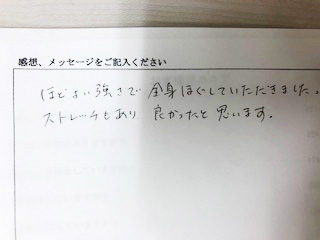 感想、メッセージをご記入ください
ほどよい強さで 全身ほぐしていただきました。
ストレッチもあり 良かったと思います。